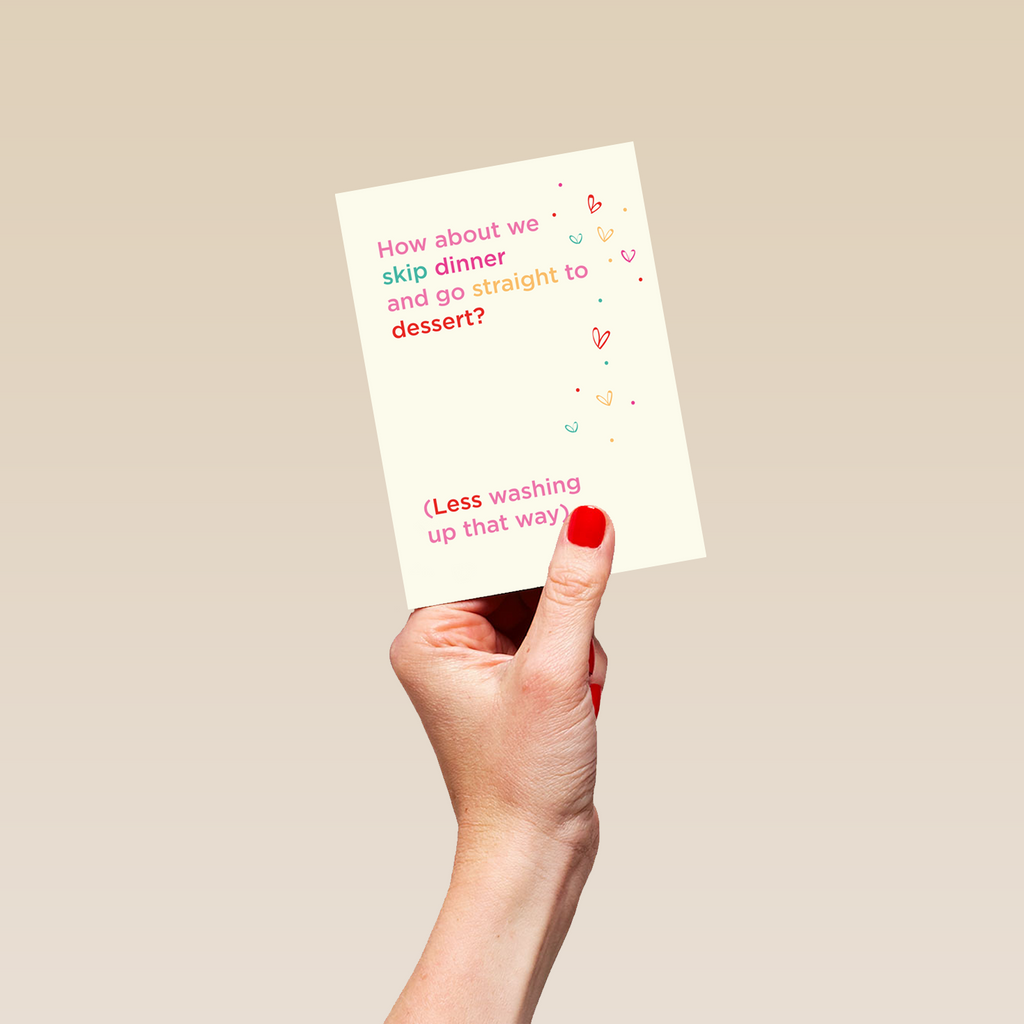 How about we
skip dinner
and go straight to
dessert?
(Less washing
up that way)